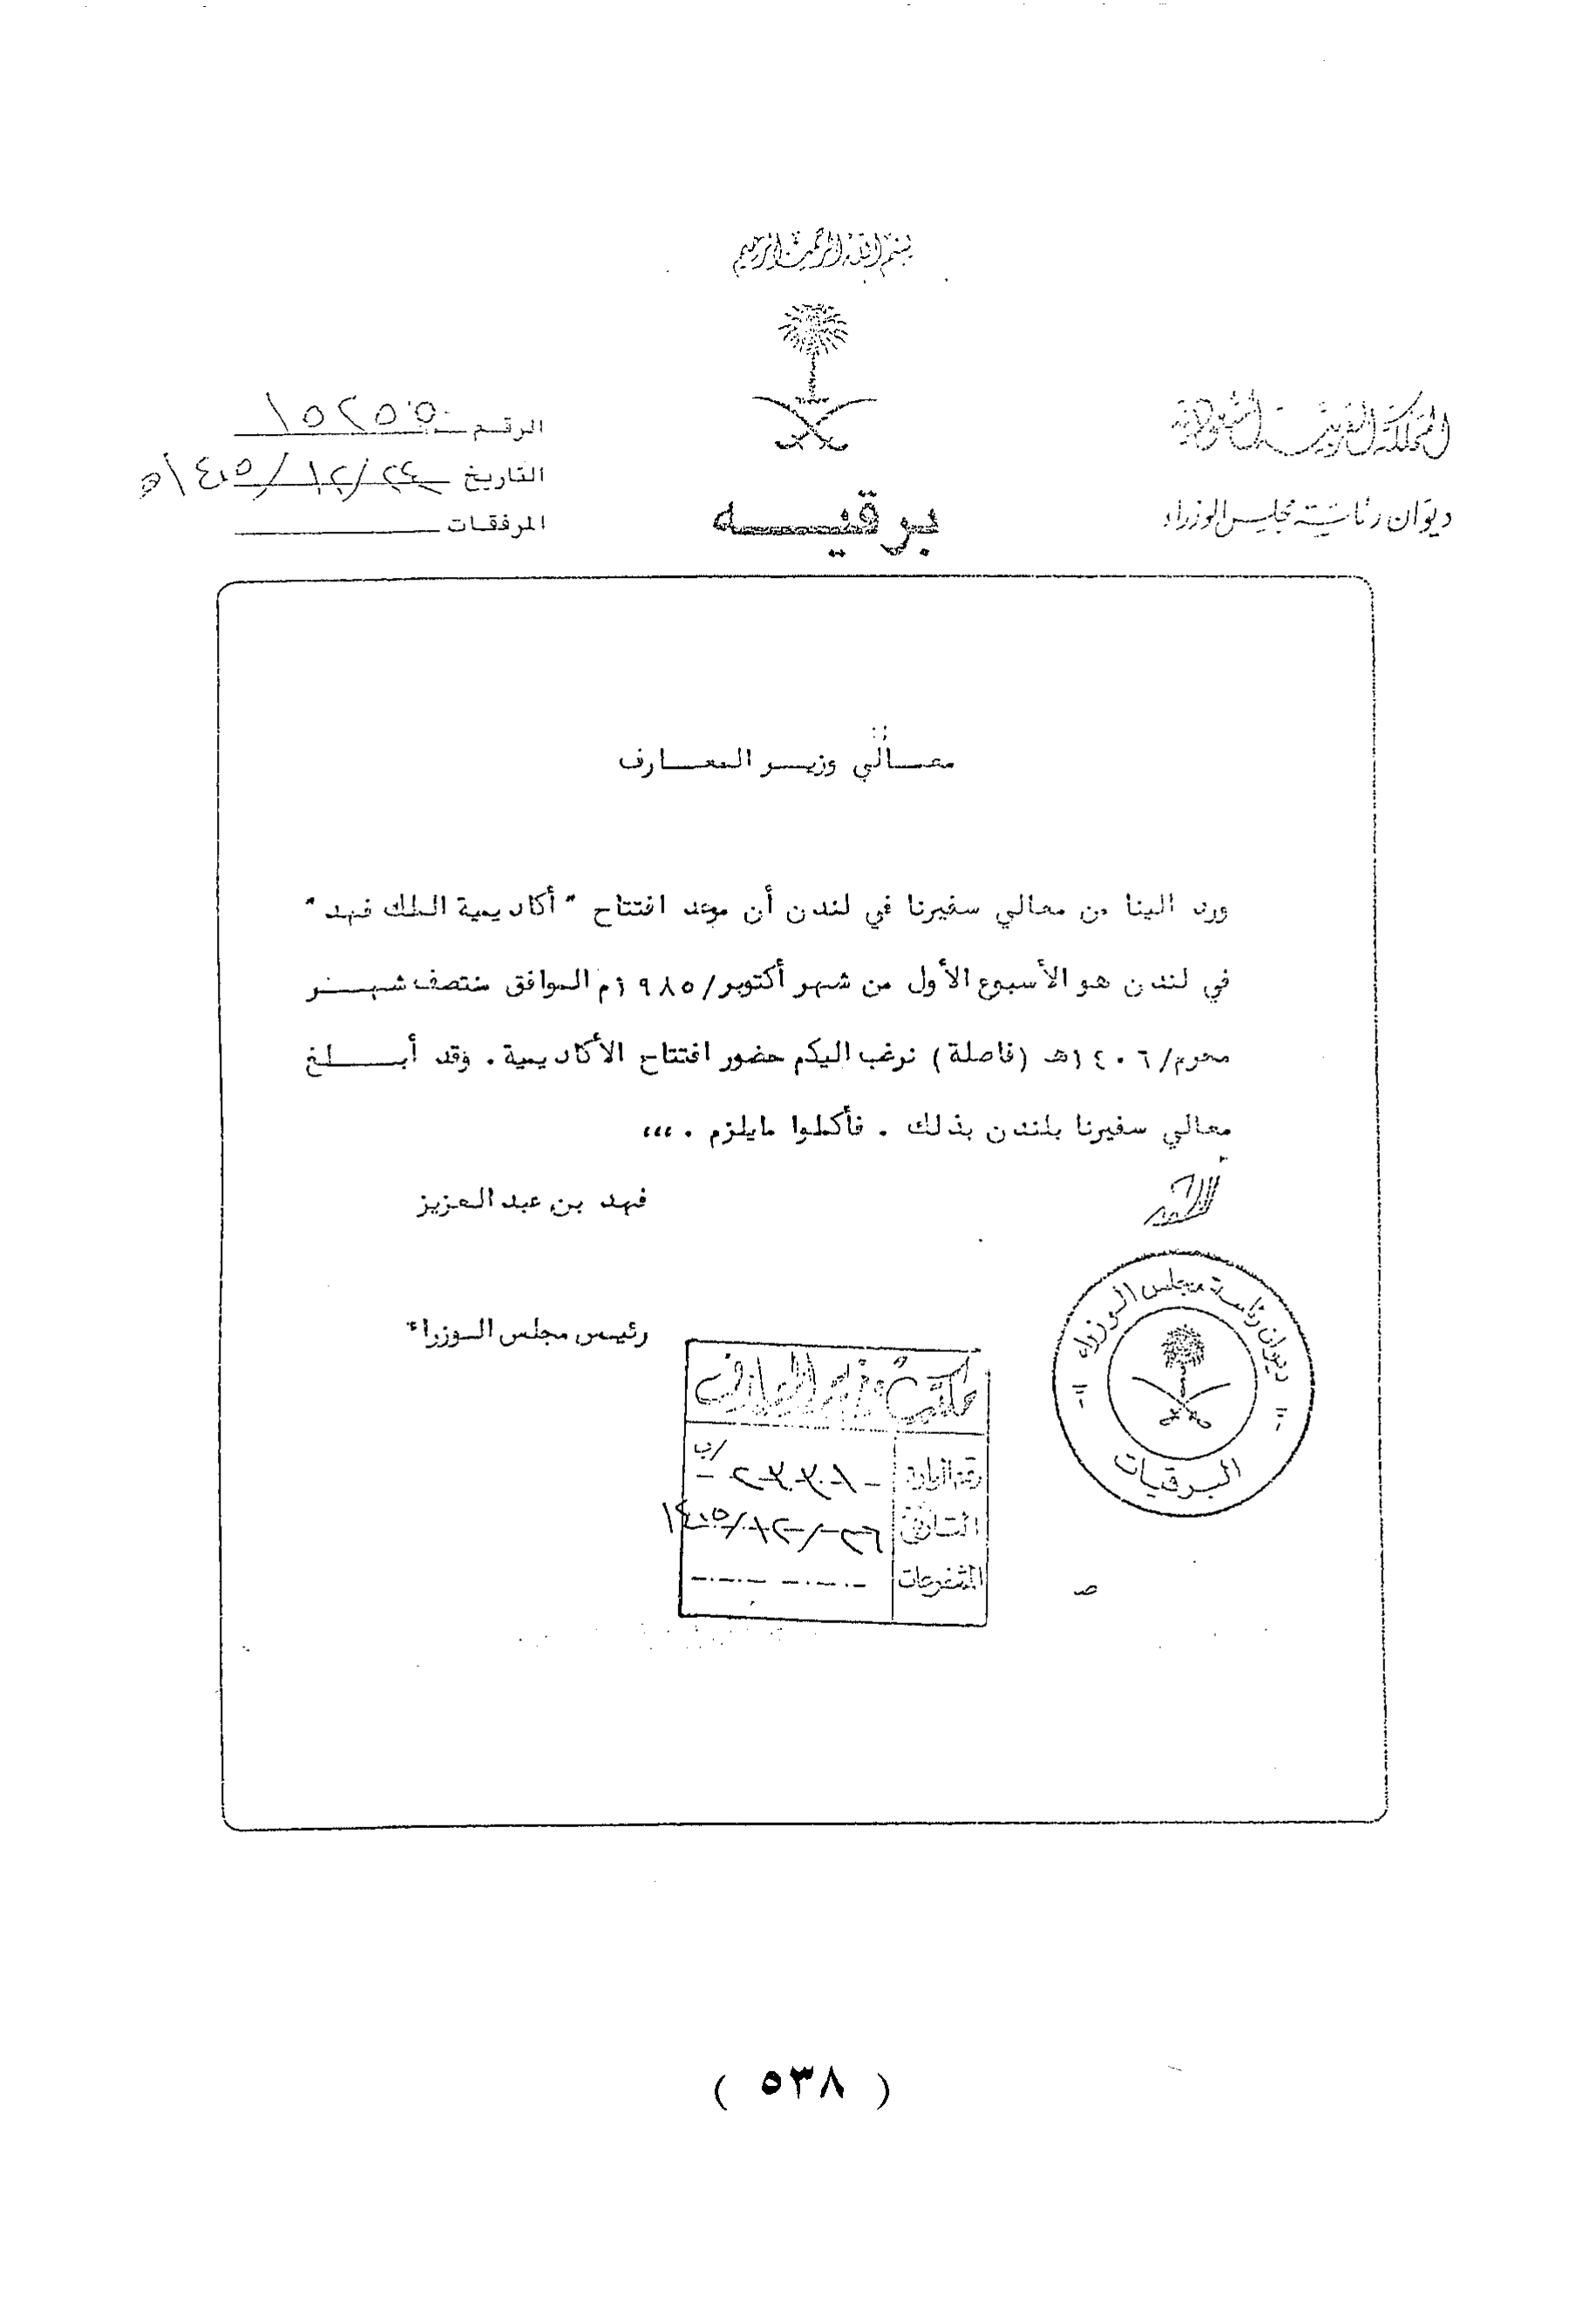 بسم الله الرحمن الرحيم
المملكة العربية السعودية
ديوان رئاسة مجلس الوزراء
برقيـــه
الرقم ١٥٢٥٥
التاريخ ٢٤/١٢/١٤٠٥ﻫ
المرفقات
معـــالي وزيـــر المعـــارف
ورد الينا من معالي سفيرنا في لندن أن موعد افتتاح " أكاديمية الملك فهد "
في لندن هو الأسبوع الأول من شهر أكتوبر/١٩٨٥م الموافق منتصف شهـــر
محرم/١٤٠٦هـ (فاصلة) نرغب اليكم حضور افتتاح الأكاديمية . وقد أبـــلغ
معالي سفيرنا بلندن بذلك . فأكملوا مايلزم . ،،،
فهد بن عبد العزيز
رئيس مجلس الوزراء
ديوان رئاسة مجلس الوزراء
البرقيات
مكتب وزير المعارف
رقم الوارد
التاريخ ٢٦/١٢/١٤٠٥
المشفوعات
ص
( ٥٣٨ )